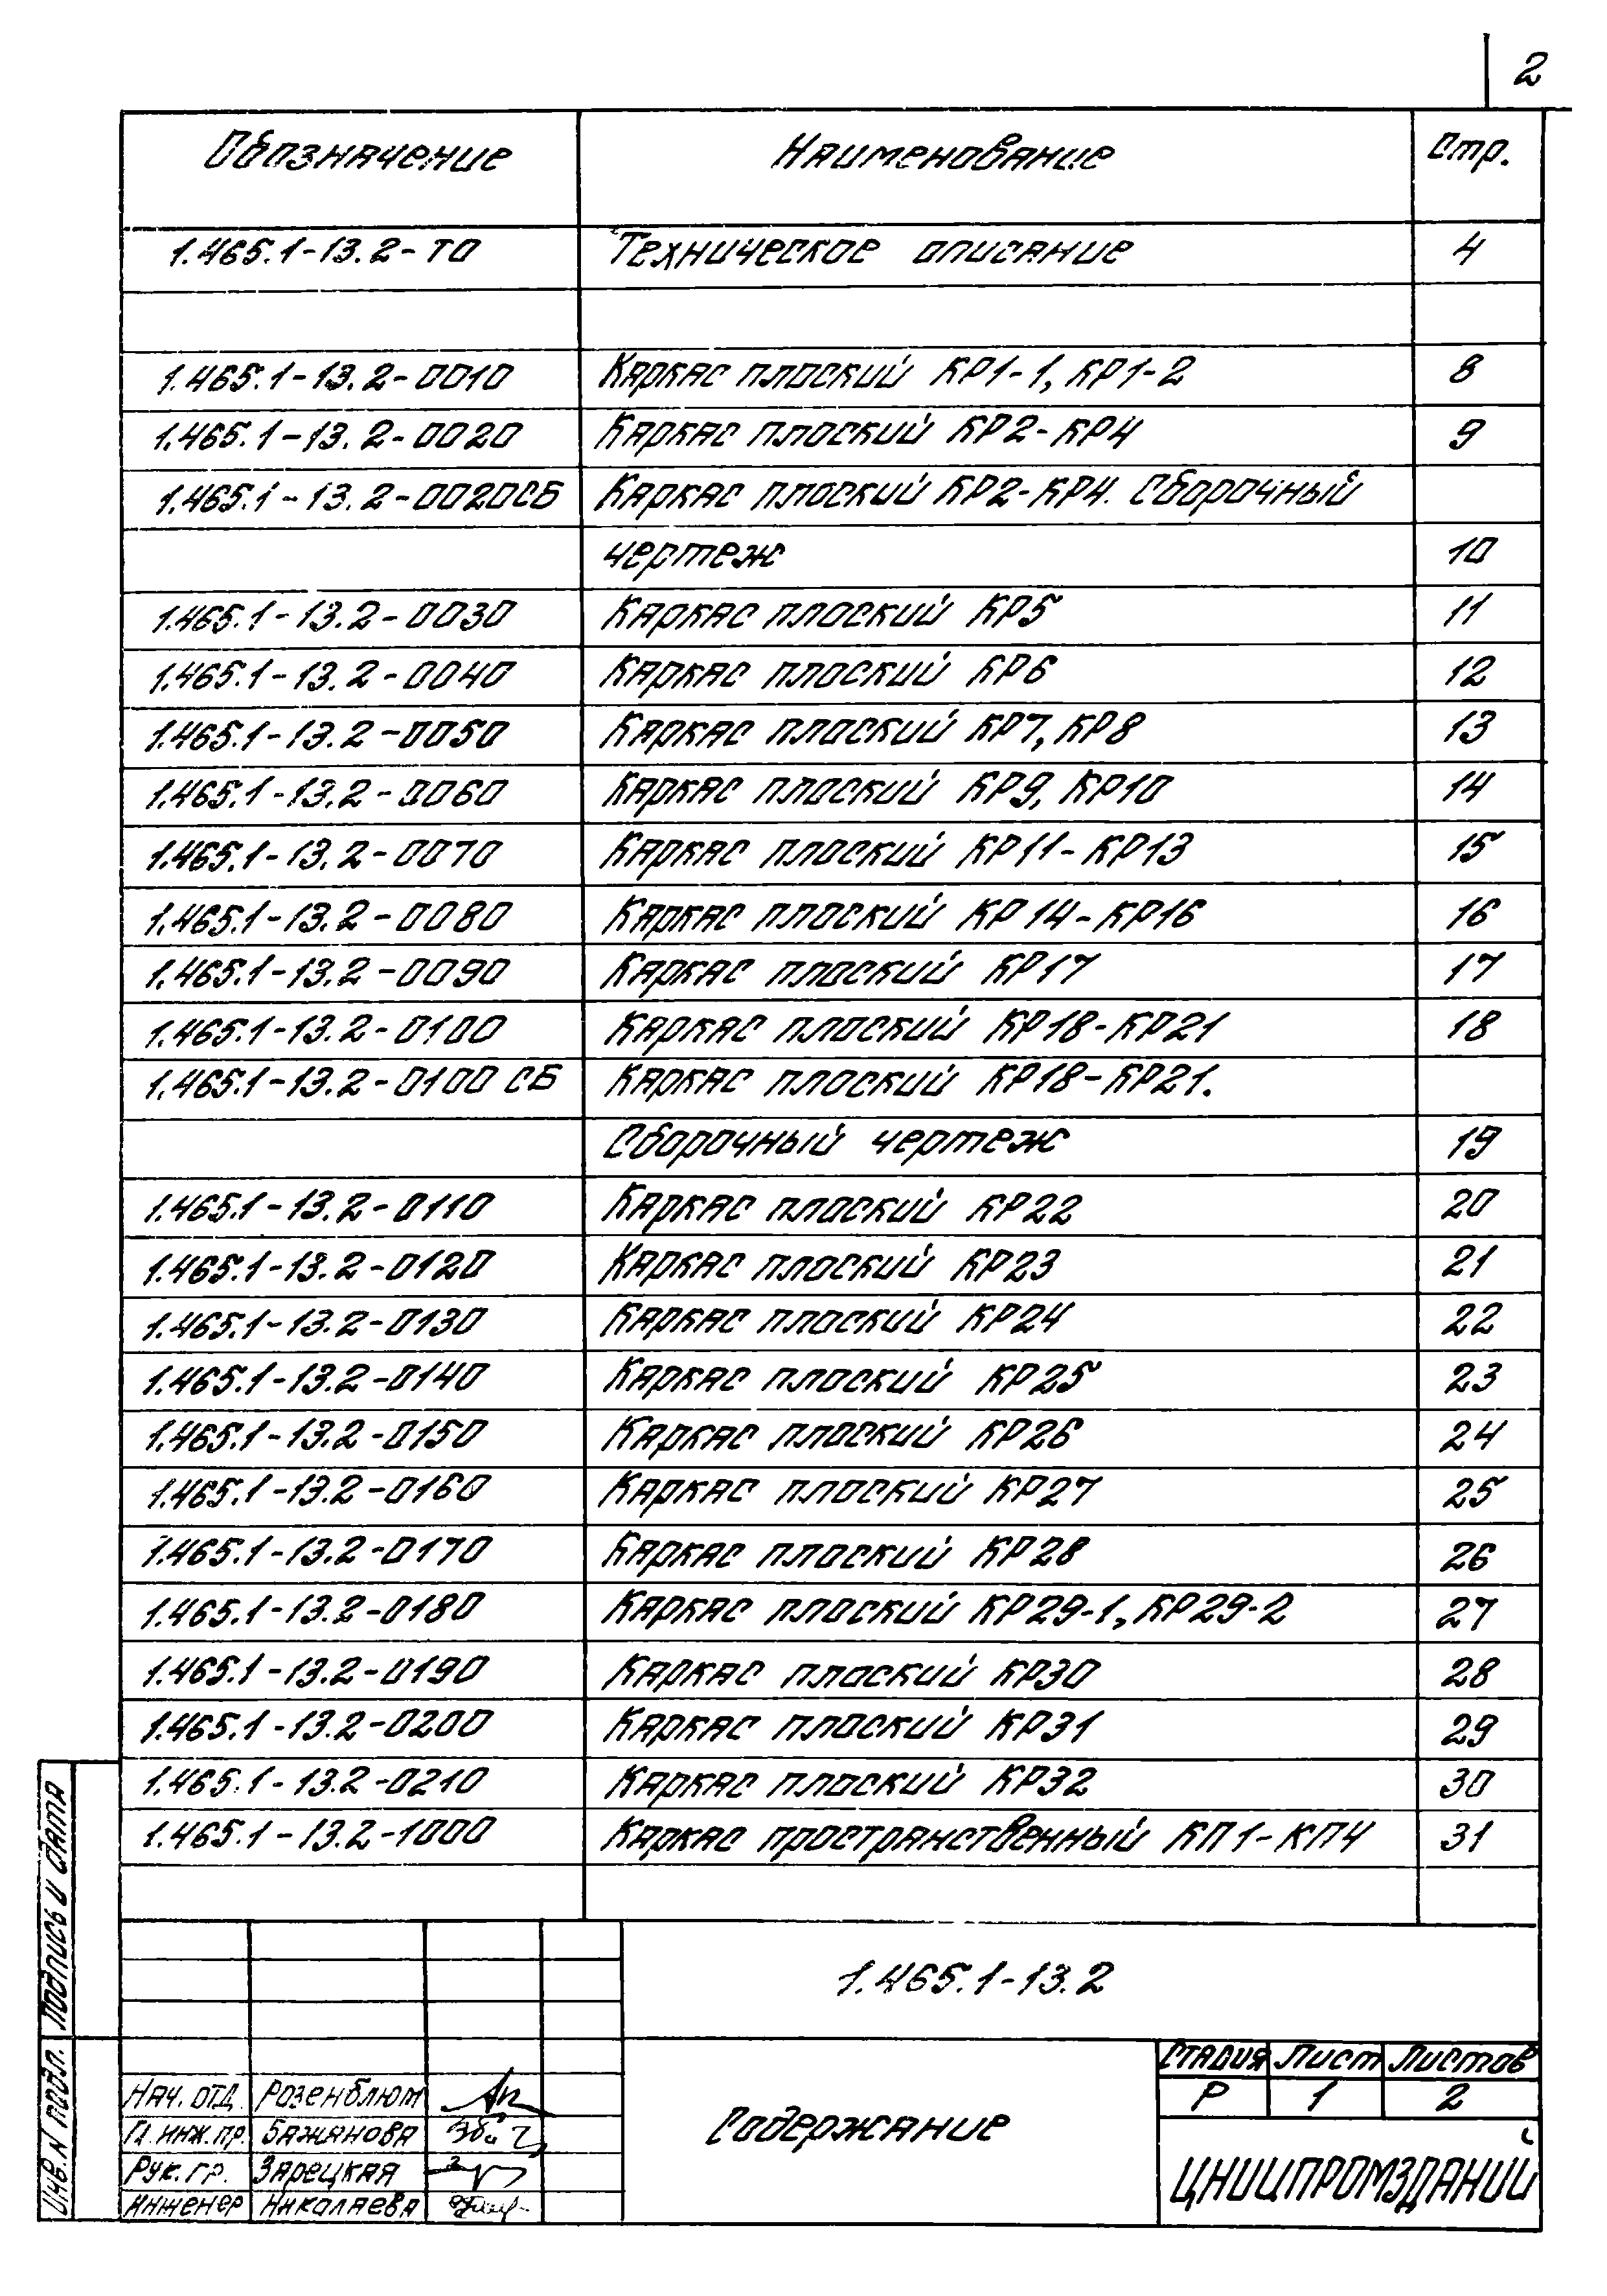 2
Обозначение Наименование Стр.
1.465.1-13.2-ТО Техническое описание 4
1.465.1-13.2-0010 Каркас плоский КР1-1, КР1-2 8
1.465.1-13.2-0020 Каркас плоский КР2-КР4 9
1.465.1-13.2-0020СБ Каркас плоский КР2-КР4. Сборочный
чертеж 10
1.465.1-13.2-0030 Каркас плоский КР5 11
1.465.1-13.2-0040 Каркас плоский КР6 12
1.465.1-13.2-0050 Каркас плоский КР7, КР8 13
1.465.1-13.2-0060 Каркас плоский КР9, КР10 14
1.465.1-13.2-0070 Каркас плоский КР11-КР13 15
1.465.1-13.2-0080 Каркас плоский КР14-КР16 16
1.465.1-13.2-0090 Каркас плоский КР17 17
1.465.1-13.2-0100 Каркас плоский КР18-КР21 18
1.465.1-13.2-0100 СБ Каркас плоский КР18-КР21.
Сборочный чертеж 19
1.465.1-13.2-0110 Каркас плоский КР22 20
1.465.1-13.2-0120 Каркас плоский КР23 21
1.465.1-13.2-0130 Каркас плоский КР24 22
1.465.1-13.2-0140 Каркас плоский КР25 23
1.465.1-13.2-0150 Каркас плоский КР26 24
1.465.1-13.2-0160 Каркас плоский КР27 25
1.465.1-13.2-0170 Каркас плоский КР28 26
1.465.1-13.2-0180 Каркас плоский КР29-1, КР29-2 27
1.465.1-13.2-0190 Каркас плоский КР30 28
1.465.1-13.2-0200 Каркас плоский КР31 29
1.465.1-13.2-0210 Каркас плоский КР32 30
1.465.1-13.2-1000 Каркас пространственный КП1-КП4 31
Подпись и дата
Инв.N подл.
1.465.1-13.2
Нач. отд. Розенблюм
Гл. инж. пр. Бажанова
Рук. гр. Зарецкая
Инженер Николаева
Содержание
Стадия Лист Листов
Р 1 2
ЦНИИПРОМЗДАНИЙ